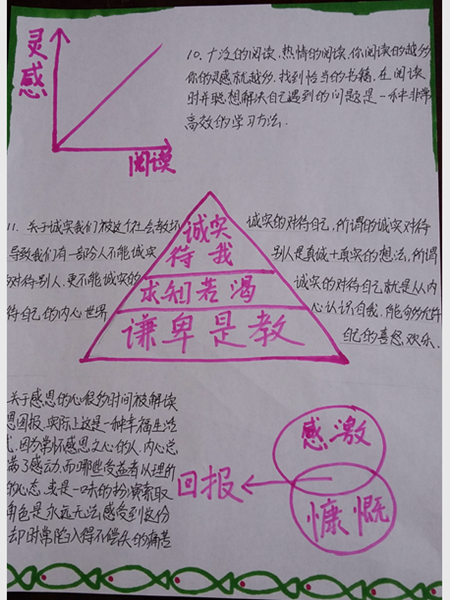 灵感
阅读
10. 广泛的阅读、热情的阅读、你阅读的越多
你的灵感就越多.找到恰当的书籍.在阅读
时并联想解决自己遇到的问题这是一种非常
高效的学习方法.
11. 关于诚实我们被这个社会教坏
导致我们有一部份人不能诚实
对待别人.更不能诚实的
待自己的内心世界
诚实
待我
求知若渴
谦卑是教
诚实的对待自己,所谓的诚实对待
别人是真诚+真实的想法,所谓
诚实的对待自己就是从内
心认识自我.能够允许
自己的喜怒欢乐.
关于感恩的心很多时间被解读
恩图报.实际上这是一种幸福生活
式.因为常怀感恩之心的人.内心总
满了感动.而哪些受益者以理
的心态.或是一味的扮演索取
角色是永远无法感受到这份
却时常陷入得不偿失的痛苦
感激
回报
慷慨